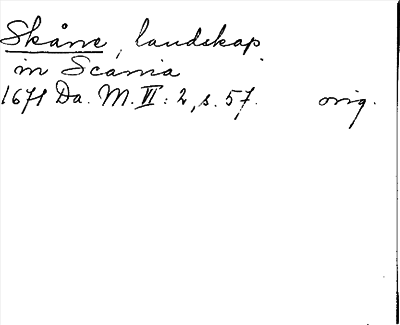 Skåne, landskap
in Scania
1671 Da. M. VI: 2, s. 57. orig.